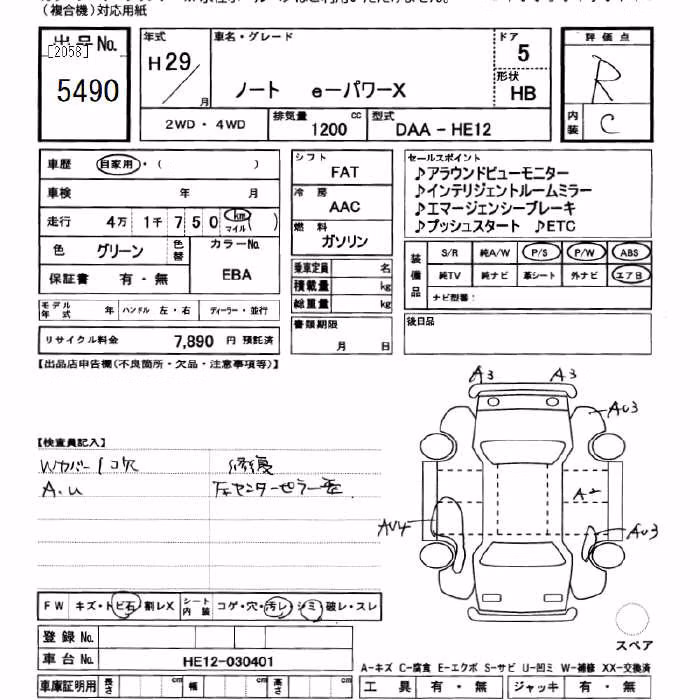 （複合機）対応用紙
出品No.
[2058]
5490
年式
H29／ 月
車名・グレード
ノート e－パワーX
ドア
5
形状
HB
2WD・4WD
排気量 cc
1200
型式
DAA－HE12
評価点
R
内装
C
車歴 自家用・（ ）
車検 年 月
走行 4万 1千 750 km マイル（ ）
色 グリーン 色替
カラーNo.
EBA
保証書 有・無
モデル年式 年 ハンドル 左・右 ディーラー・並行
リサイクル料金 7,890 円 預託済
シフト
FAT
冷房
AAC
燃料
ガソリン
乗車定員 名
積載量 kg
総重量 kg
書類期限
月 日
セールスポイント
♪アラウンドビューモニター
♪インテリジェントルームミラー
♪エマージェンシーブレーキ
♪プッシュスタート ♪ETC
装備品
S/R 純A/W P/S P/W ABS
純TV 純ナビ 革シート 外ナビ エアB
ナビ型番：
後日品
【出品店申告欄（不良箇所・欠品・注意事項等）】
【検査員記入】
Wカバー1コ欠 修復
A.u 左センターピラー歪
A3 A3
AU3
A2
AU4
AU3
FW キズ・トビ石・割レX シート内装 コゲ・穴・汚レ・シミ・破レ・スレ
登録No.
車台No. HE12-030401
車庫証明用 長さ cm 幅 cm 高さ cm
スペア
A－キズ C－腐食 E－エクボ S－サビ U－凹ミ W－補修 XX－交換済
工具 有・無 ジャッキ 有・無